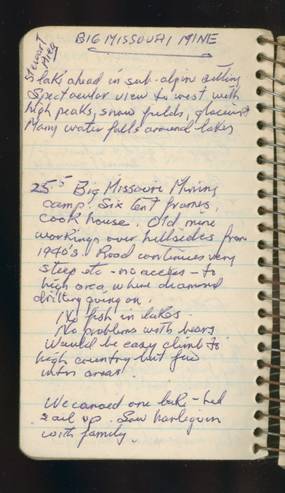 BIG MISSOURI MINE
Stewart
Area
5 lake ahead in sub-alpine setting
Spectacular view to west with
high peaks, snow fields, glaciers
Many water falls around lakes
25.5 Big Missouri Mining
camp. Six tent frames,
cook house. Old mine
workings over hillsides from
1940's. Road continues very
steep etc - no access - to
high area, where diamond
drilling going on.
No fish in lakes.
No problems with bears
Would be easy climb to
high country but few
areas.
We canoed one lake - had
sail up. Saw harlequin
with family.